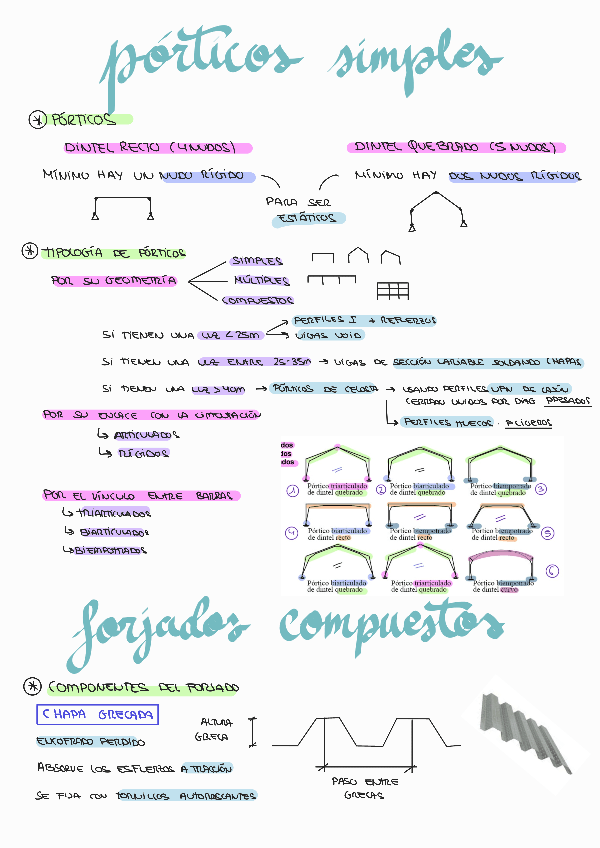 pórticos simples
* PÓRTICOS
DINTEL RECTO (4 NUDOS)
DINTEL QUEBRADO (5 NUDOS)
MÍNIMO HAY UN NUDO RÍGIDO
PARA SER
ESTÁTICOS
MÍNIMO HAY DOS NUDOS RÍGIDOS
* TIPOLOGÍA DE PÓRTICOS
POR SU GEOMETRÍA
SIMPLES
MÚLTIPLES
COMPUESTOS
SI TIENEN UNA LUZ < 25m
PERFILES I + REFUERZOS
VIGAS BOYD
SI TIENEN UNA LUZ ENTRE 25-35m → VIGAS DE SECCIÓN VARIABLE SOLDANDO CHAPAS
SI TIENEN UNA LUZ > 40m → PÓRTICOS DE CELOSÍA → USANDO PERFILES UPN DE CAJÓN
CERRADO UNIDOS POR DIAG PESADOS
PERFILES HUECOS · LIGEROS
POR SU ENLACE CON LA CIMENTACIÓN
↳ ARTICULADOS
↳ RÍGIDOS
POR EL VÍNCULO ENTRE BARRAS
↳ TRIARTICULADOS
↳ BIARTICULADOS
↳ BIEMPOTRADOS
dos
dos
dos
1 Pórtico triarticulado
de dintel quebrado
2 Pórtico biarticulado
de dintel quebrado
Pórtico biempotrado 3
de dintel quebrado
4 Pórtico biarticulado
de dintel recto
Pórtico biempotrado
de dintel recto
Pórtico biempotrado 5
de dintel recto
Pórtico biarticulado
de dintel quebrado
Pórtico triarticulado
de dintel quebrado
Pórtico biempotrado 6
de dintel curvo
forjados compuestos
* COMPONENTES DEL FORJADO
CHAPA GRECADA
ENCOFRADO PERDIDO
ABSORVE LOS ESFUERZOS A TRACIÓN
SE FIJA CON TORNILLOS AUTOROSCANTES
ALTURA
GRECA
PASO ENTRE
GRECAS